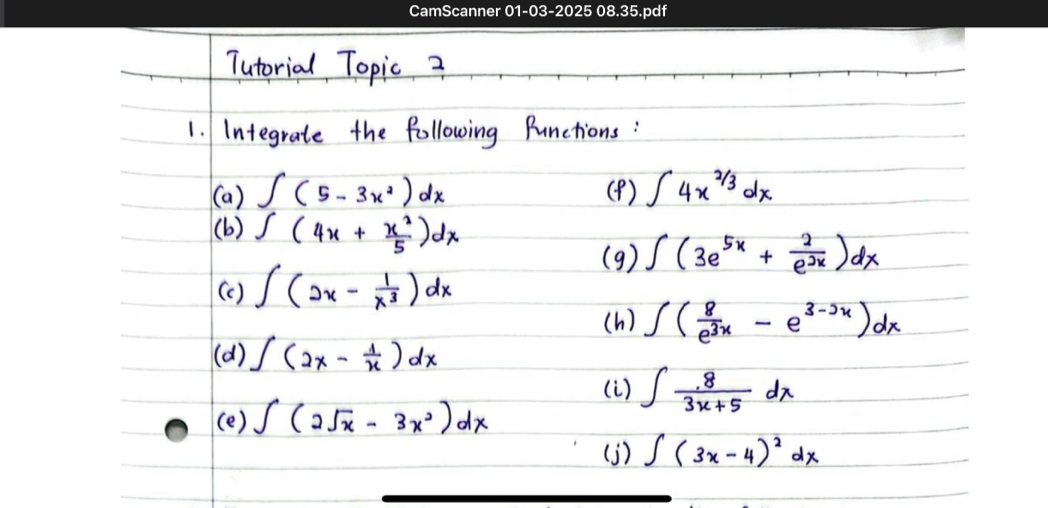 CamScanner 01-03-2025 08.35.pdf
Tutorial Topic 2
1. Integrate the following functions :
(a) ∫ (5 - 3x²) dx
(b) ∫ (4x + x²/5) dx
(c) ∫ (2x - 1/x³) dx
(d) ∫ (2x - 1/x) dx
(e) ∫ (2√x - 3x²) dx
(f) ∫ 4x^(2/3) dx
(g) ∫ (3e^(5x) + 2/e^(2x)) dx
(h) ∫ (8/e^(3x) - e^(3-2x)) dx
(i) ∫ 8/(3x+5) dx
(j) ∫ (3x - 4)² dx